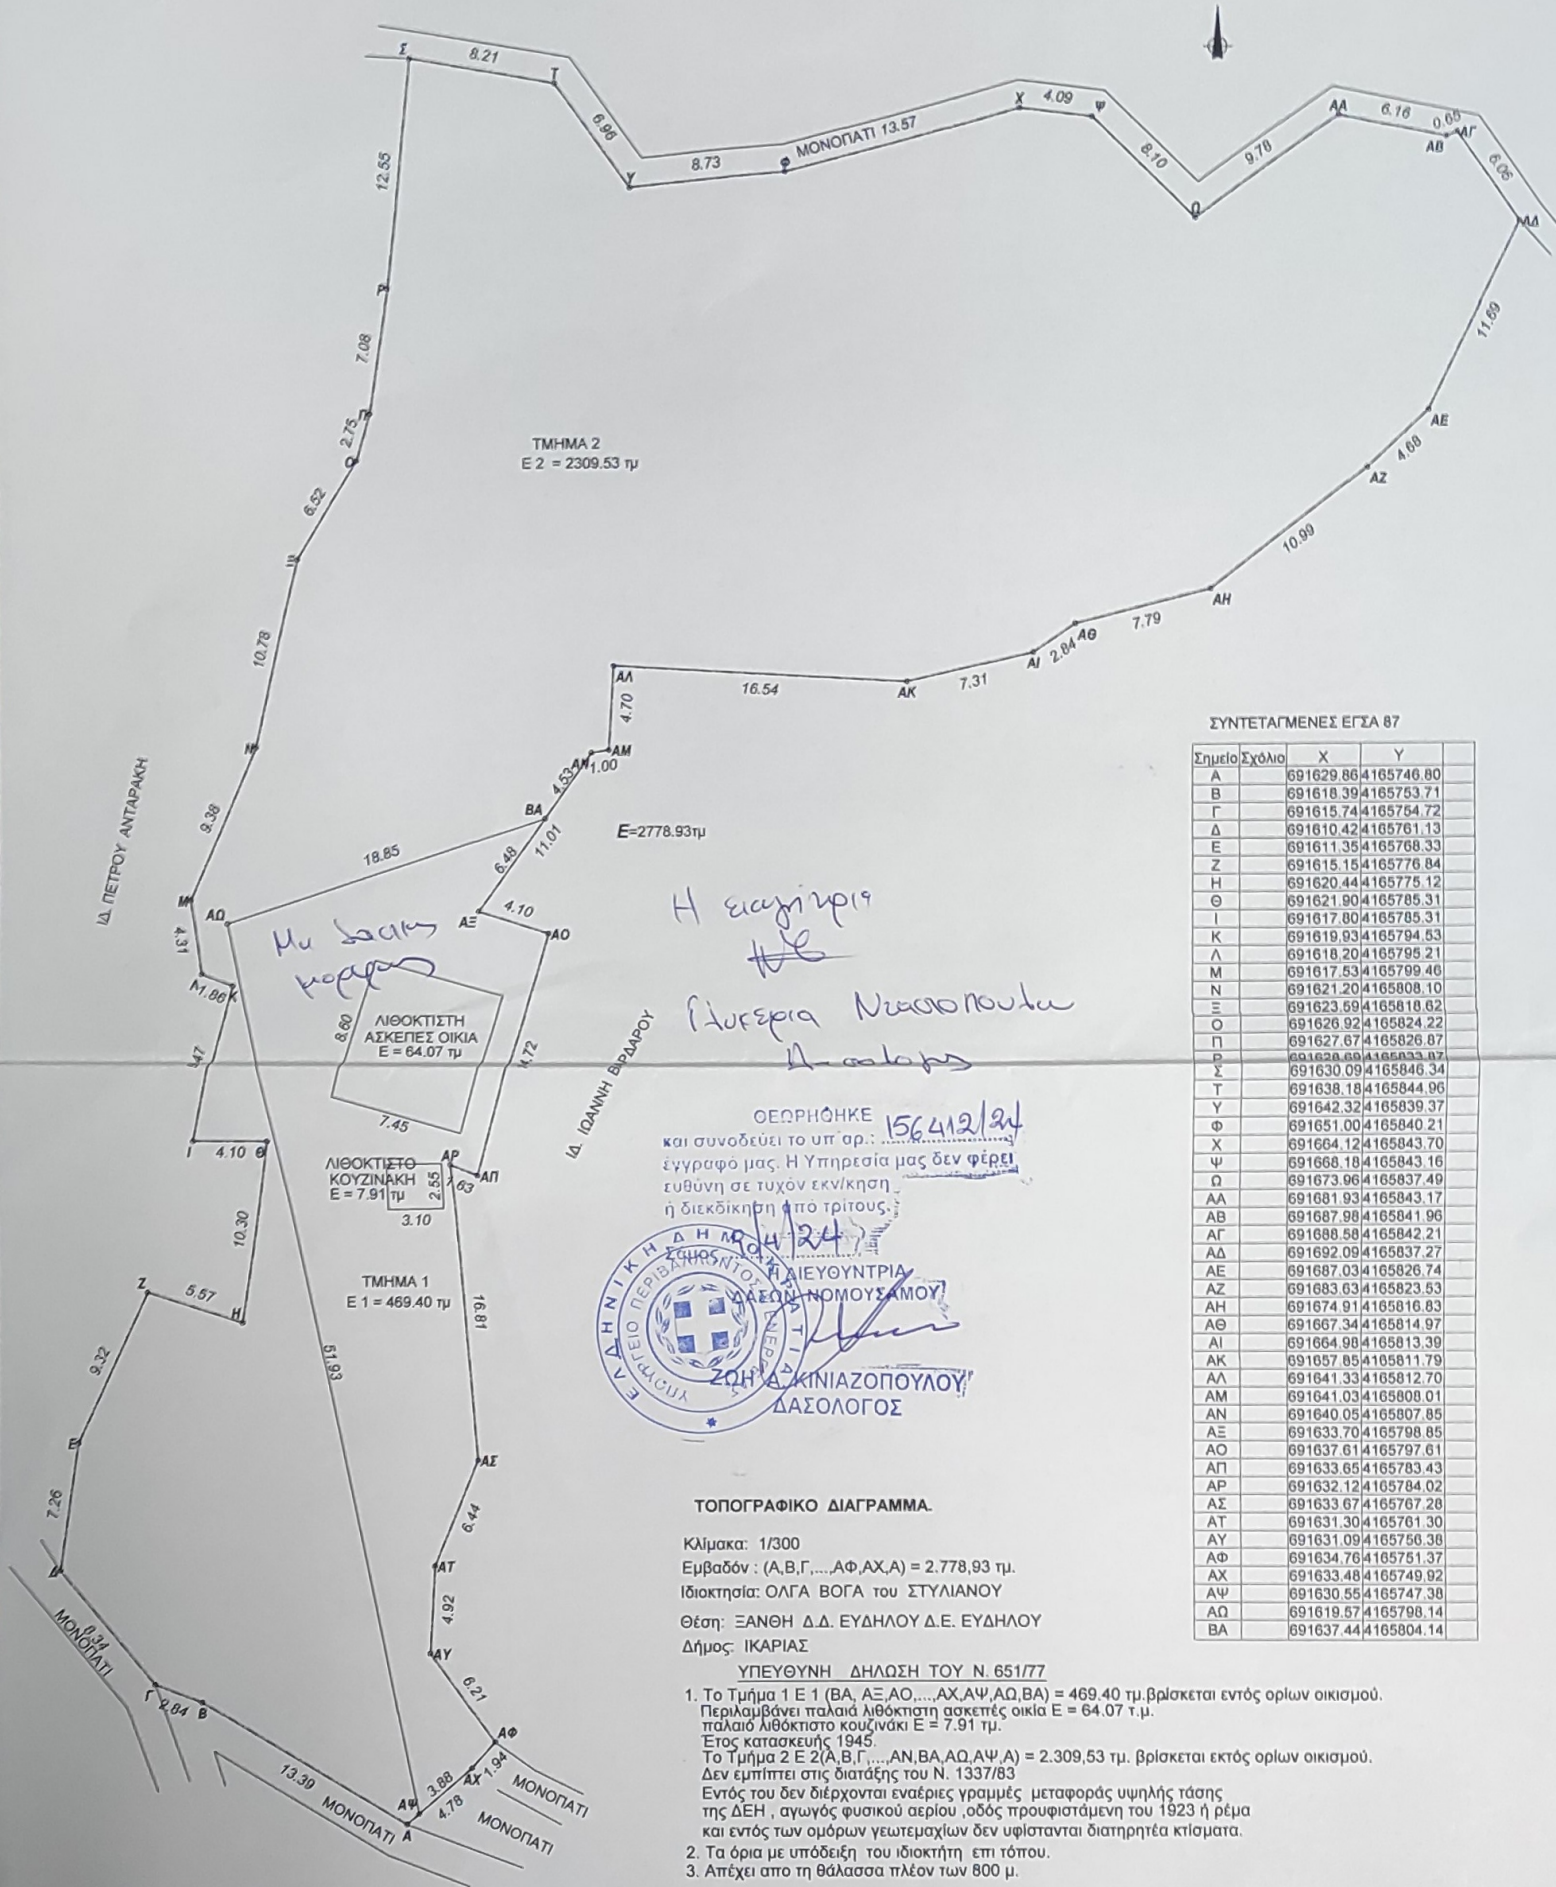 Σ
8.21
Τ
6.96
Υ
8.73
Φ
ΜΟΝΟΠΑΤΙ 13.57
Χ
4.09
Ψ
8.10
Ω
9.78
ΑΑ
6.16
ΑΒ
0.65
ΑΓ
6.06
ΑΔ
12.55
Ρ
7.08
Π
2.75
Ο
6.52
Ξ
10.78
Ν
9.38
Μ
4.31
Λ
1.86
Κ
Ι
4.10
Θ
10.30
Ζ
5.57
Η
9.32
Ε
7.26
Δ
8.34
ΜΟΝΟΠΑΤΙ
Γ
2.84
Β
13.39
ΜΟΝΟΠΑΤΙ
Α
ΑΨ
3.88
4.78
ΑΧ
1.94
ΑΦ
ΜΟΝΟΠΑΤΙ
ΜΟΝΟΠΑΤΙ
6.21
ΑΥ
4.92
ΑΤ
6.44
ΑΣ
16.81
51.93
11.69
ΑΕ
4.68
ΑΖ
10.99
ΑΗ
7.79
ΑΘ
2.84
ΑΙ
7.31
ΑΚ
16.54
ΑΛ
4.70
ΑΜ
1.00
ΑΝ
4.53
ΒΑ
11.01
6.48
18.85
ΑΩ
ΑΞ
4.10
ΑΟ
ΑΠ
ΑΡ
1.63
ΤΜΗΜΑ 2
Ε 2 = 2309.53 τμ
Ε=2778.93τμ
ΙΔ. ΠΕΤΡΟΥ ΑΝΤΑΡΑΚΗ
ΙΔ. ΙΩΑΝΝΗ ΒΑΡΔΑΡΟΥ
Μη δασικής
μορφής
8.60
ΛΙΘΟΚΤΙΣΤΗ
ΑΣΚΕΠΕΣ ΟΙΚΙΑ
Ε = 64.07 τμ
7.45
ΛΙΘΟΚΤΙΣΤΟ
ΚΟΥΖΙΝΑΚΗ
Ε = 7.91 τμ
2.55
3.10
ΤΜΗΜΑ 1
Ε 1 = 469.40 τμ
Η εισηγήτρια
Γλυκερία
Δασολόγος
ΘΕΩΡΗΘΗΚΕ
και συνοδεύει το υπ αρ.: 156412/24
έγγραφό μας. Η Υπηρεσία μας δεν φέρει
ευθύνη σε τυχόν εκν/κηση
ή διεκδίκηση από τρίτους.
Σάμος
Η ΔΙΕΥΘΥΝΤΡΙΑ
ΔΑΣΩΝ ΝΟΜΟΥ ΣΑΜΟΥ
ΖΩΗ Α. ΚΙΝΙΑΖΟΠΟΥΛΟΥ
ΔΑΣΟΛΟΓΟΣ
ΕΛΛΗΝΙΚΗ ΔΗΜΟΚΡΑΤΙΑ
ΥΠΟΥΡΓΕΙΟ ΠΕΡΙΒΑΛΛΟΝΤΟΣ
ΣΥΝΤΕΤΑΓΜΕΝΕΣ ΕΓΣΑ 87
Σημείο Σχόλιο Χ Υ
Α 691629.86 4165746.80
Β 691618.39 4165753.71
Γ 691615.74 4165754.72
Δ 691610.42 4165761.13
Ε 691611.35 4165768.33
Ζ 691615.15 4165776.84
Η 691620.44 4165775.12
Θ 691621.90 4165785.31
Ι 691617.80 4165785.31
Κ 691619.93 4165794.53
Λ 691618.20 4165795.21
Μ 691617.53 4165799.46
Ν 691621.20 4165808.10
Ξ 691623.59 4165818.62
Ο 691626.92 4165824.22
Π 691627.67 4165826.87
Ρ 691628.69 4165833.87
Σ 691630.09 4165846.34
Τ 691638.18 4165844.96
Υ 691642.32 4165839.37
Φ 691651.00 4165840.21
Χ 691664.12 4165843.70
Ψ 691668.18 4165843.16
Ω 691673.96 4165837.49
ΑΑ 691681.93 4165843.17
ΑΒ 691687.98 4165841.96
ΑΓ 691688.58 4165842.21
ΑΔ 691692.09 4165837.27
ΑΕ 691687.03 4165826.74
ΑΖ 691683.63 4165823.53
ΑΗ 691674.91 4165816.83
ΑΘ 691667.34 4165814.97
ΑΙ 691664.98 4165813.39
ΑΚ 691657.85 4165811.79
ΑΛ 691641.33 4165812.70
ΑΜ 691641.03 4165808.01
ΑΝ 691640.05 4165807.85
ΑΞ 691633.70 4165798.85
ΑΟ 691637.61 4165797.61
ΑΠ 691633.65 4165783.43
ΑΡ 691632.12 4165784.02
ΑΣ 691633.67 4165767.28
ΑΤ 691631.30 4165761.30
ΑΥ 691631.09 4165756.38
ΑΦ 691634.76 4165751.37
ΑΧ 691633.48 4165749.92
ΑΨ 691630.55 4165747.38
ΑΩ 691619.57 4165798.14
ΒΑ 691637.44 4165804.14
ΤΟΠΟΓΡΑΦΙΚΟ ΔΙΑΓΡΑΜΜΑ.
Κλίμακα: 1/300
Εμβαδόν : (Α,Β,Γ,...,ΑΦ,ΑΧ,Α) = 2.778,93 τμ.
Ιδιοκτησία: ΟΛΓΑ ΒΟΓΑ του ΣΤΥΛΙΑΝΟΥ
Θέση: ΞΑΝΘΗ Δ.Δ. ΕΥΔΗΛΟΥ Δ.Ε. ΕΥΔΗΛΟΥ
Δήμος: ΙΚΑΡΙΑΣ
ΥΠΕΥΘΥΝΗ ΔΗΛΩΣΗ ΤΟΥ Ν. 651/77
1. Το Τμήμα 1 Ε 1 (ΒΑ, ΑΞ,ΑΟ,...,ΑΧ,ΑΨ,ΑΩ,ΒΑ) = 469.40 τμ.βρίσκεται εντός ορίων οικισμού.
Περιλαμβάνει παλαιά λιθόκτιστη ασκεπές οικία Ε = 64.07 τ.μ.
παλαιό λιθόκτιστο κουζινάκι Ε = 7.91 τμ.
Έτος κατασκευής 1945.
Το Τμήμα 2 Ε 2(Α,Β,Γ,...,ΑΝ,ΒΑ,ΑΩ,ΑΨ,Α) = 2.309,53 τμ. βρίσκεται εκτός ορίων οικισμού.
Δεν εμπίπτει στις διατάξης του Ν. 1337/83
Εντός του δεν διέρχονται εναέριες γραμμές μεταφοράς υψηλής τάσης
της ΔΕΗ , αγωγός φυσικού αερίου ,οδός προυφιστάμενη του 1923 ή ρέμα
και εντός των ομόρων γεωτεμαχίων δεν υφίστανται διατηρητέα κτίσματα.
2. Τα όρια με υπόδειξη του ιδιοκτήτη επι τόπου.
3. Απέχει απο τη θάλασσα πλέον των 800 μ.